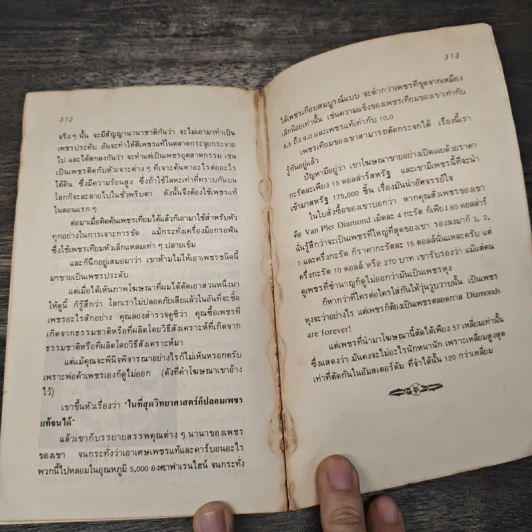 312
จริง ๆ นั้น จะมีสัญญานานาชาติกันว่า จะไม่เอามาทำเป็น
เพชรประดับ อันจะทำให้ตีเพชรแท้ในตลาดกระจุยกระจาย
ไป และได้ตกลงกันว่า จะทำแต่เป็นเพชรอุตสาหกรรม เช่น
เป็นเพชรติดกับหัวเจาะต่าง ๆ ที่เจาะค้นหาอะไรต่ออะไร
ใต้ดิน ซึ่งมีความร้อนสูง ซึ่งถ้าใช้โลหะเท่าที่ทราบกันบน
โลกก็จะละลายไปในชั่วพริบตา ดังนั้นจึงต้องใช้เพชรแท้
ในตอนแรก ๆ
ต่อมาเมื่อคิดค้นเพชรเทียมได้แล้วก็เอามาใช้สำหรับหัว
ทุกอย่างในการเจาะการขัด แม้กระทั่งเครื่องมือกรอฟัน
ซึ่งใช้เพชรเทียมหัวเล็กแหลมเท่า ๆ ปลายเข็ม
และก็นึกอยู่เสมอมาว่า เขาห้ามไม่ให้เอาเพชรชนิดนี้
มาขายเป็นเพชรประดับ
แต่เมื่อได้เห็นภาพโฆษณาที่ผมได้ตัดเอาส่วนหนึ่งมา
ให้ดูนี้ ก็รู้สึกว่า โลกเราไม่ปลอดภัยเสียแล้วในอันที่จะซื้อ
เพชรอะไรสักอย่าง คุณลองสำรวจดูซิว่า คุณซื้อเพชรที่
เกิดจากธรรมชาติหรือที่ผลิตโดยวิธีสังเคราะห์ที่เกิดจาก
ธรรมชาติหรือที่ผลิตโดยวิธีสังเคราะห์มา
แต่แม้คุณจะพินิจพิจารณาอย่างไรก็ไม่เห็นหรอกครับ
เพราะพ่อค้าเพชรเองก็ดูไม่ออก (ดังที่คำโฆษณาเขาอ้าง
ไว้)
เขาขึ้นหัวเรื่องว่า "ในที่สุดวิทยาศาสตร์ก็ปลอมเพชร
แท้จนได้"
แล้วเขาก็บรรยายสรรพคุณต่าง ๆ นานาของเพชร
ของเขา จนกระทั่งว่าเอาเศษเพชรแท้และคาร์บอนอะไร
พวกนี้ไปหลอมในอุณหภูมิ 5,000 องศาฟาเรนไฮน์ จนกระทั่ง
313
ได้เพชรเกือบสมบูรณ์แบบ จะต่ำกว่าเพชรที่ขุดจากเหมือง
เล็กน้อยเท่านั้น เช่นความแข็งของเพชรเทียมของเขาเท่ากับ
ถึง 9.0 และเพชรแท้เท่ากับ 10.0
เพชรเทียมของเขาสามารถตัดกระจกได้ เรื่องนี้เรา
รู้กันอยู่แล้ว
ปัญหามีอยู่ว่า เขาโฆษณาขายอย่างเปิดเผยด้วยราคา
กะรัตละเพียง 15 ดอลล่าร์สหรัฐ และเขามีเพชรนี้ที่จะนำ
เข้ามาสหรัฐ 175,000 ชิ้น เรื่องมันน่าอัศจรรย์ใจ
ในใบสั่งซื้อของเขาบอกว่า หากคุณสั่งเพชรของเขา
คือ Van Pler Diamond เม็ดละ 4 กะรัต ก็เพียง 60 ดอลล่าร์
นั่นรู้สึกว่าจะเป็นเพชรที่ใหญ่ที่สุดของเขา รองลงมาก็ 3, 2,
1 และครึ่งกะรัต ก็ราคากะรัตละ 15 ดอลล์นั่นแหละครับ แต่
ครึ่งกะรัต 10 ดอลล์ หรือ 270 บาท เขารับรองว่า แม้แต่คน
ดูเพชรที่ชำนาญก็ดูไม่ออกว่ามันเป็นเพชรหุง
ก็หากว่าที่ใครต่อใครใส่กันให้วุ่นวูบวาบนั้น เป็นเพชร
หุงจะว่าอย่างไร แต่เพชรก็ต้องเป็นเพชรตลอดกาล Diamonds
are forever!
แต่เพชรที่นำมาโฆษณานี้ตัดได้เพียง 57 เหลี่ยมเท่านั้น
ซึ่งแสดงว่า มันคงจะไม่อะไรนักหนานัก เพราะเหลี่ยมสูงสุด
เท่าที่ตัดกันในอัมสเตอร์ดัม ที่จำได้นั้น 120 กว่าเหลี่ยม